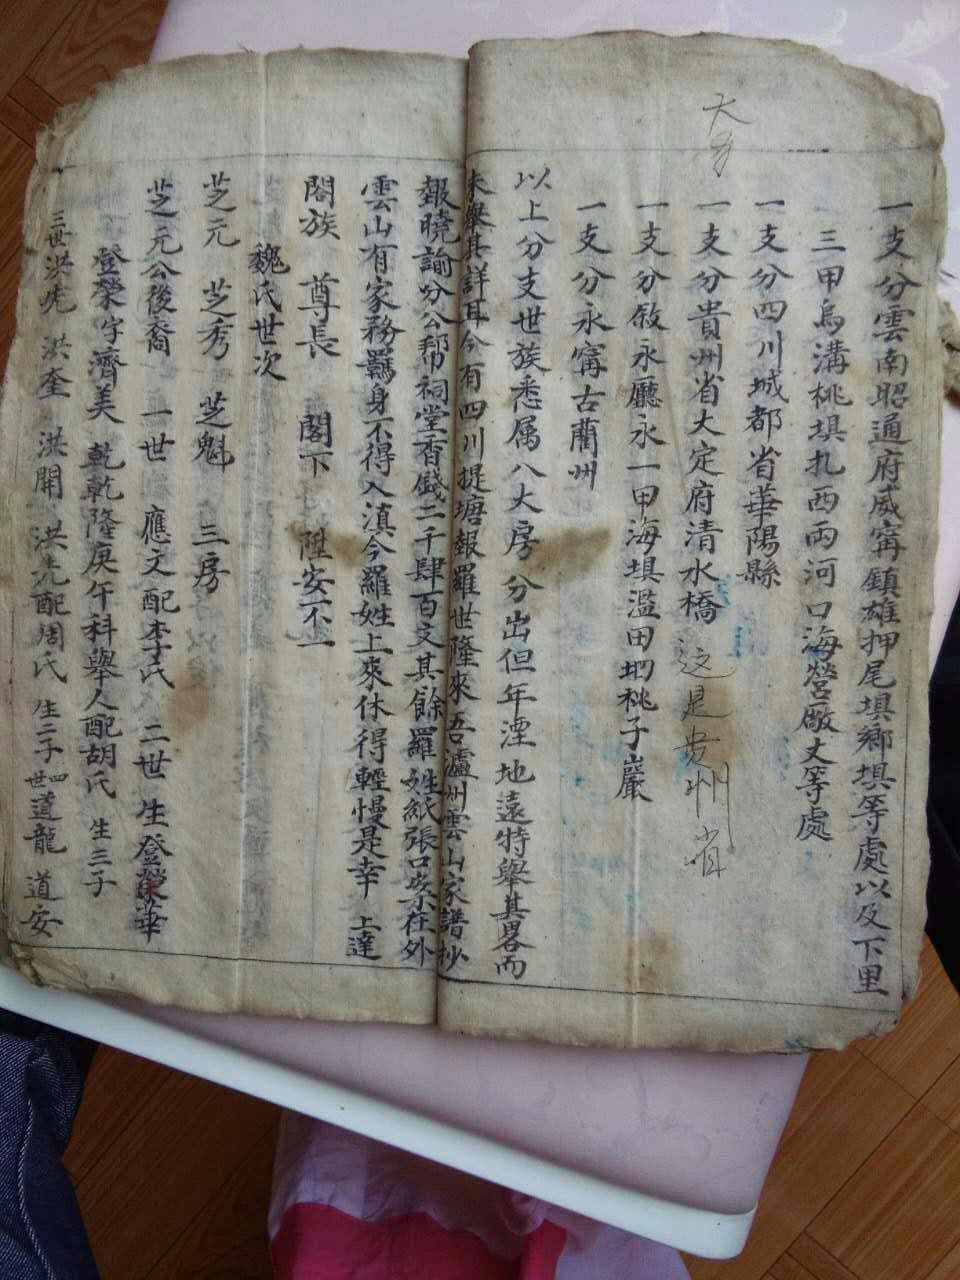 大方
一支分雲南昭通府威甯鎮雄押尾埧鄉埧等處以及下里
三甲烏溝桃埧扎西兩河口海營廠丈等處
一支分四川城都省華陽縣
一支分貴州省大定府清水橋 这是贵州省
一支分敘永廳永一甲海埧濫田垇桃子巖
一支分永甯古藺州
以上分支世族悉属八大房分出但年湮地遠特舉其畧而
未舉其詳耳今有四川提塘報羅世隆來吾瀘州雲山家譜抄
報曉諭分公帮祠堂香錢二千肆百文其餘羅姓紙張口岸在外
雲山有家務羈身不得入滇今羅姓上來休得輕慢是幸 上達
閤族 尊長 閣下 陞安不一
魏氏世次
芝元 芝秀 芝魁 三房
芝元公後裔 一世 應文配李氏 二世生登榮華
登榮字濟美 乾乾隆庚午科舉人配胡氏 生三子
三世洪 洪奎 洪開 洪 配周氏 生二子四世道龍 道安